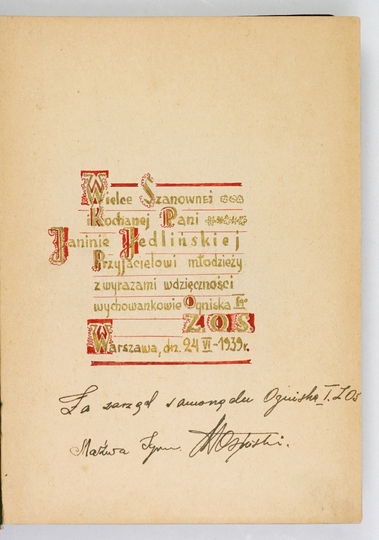 Wielce Szanownei
i Kochanej Pani
Janinie Jedlińskiej
Przyjacielowi młodzieży
z wyrazami wdzięczności
wychowankowie Ogniska
Z.O.S.
Warszawa, dn. 24 VI - 1939 r.
Za zarząd samorządu Ogniska I. Z.O.S